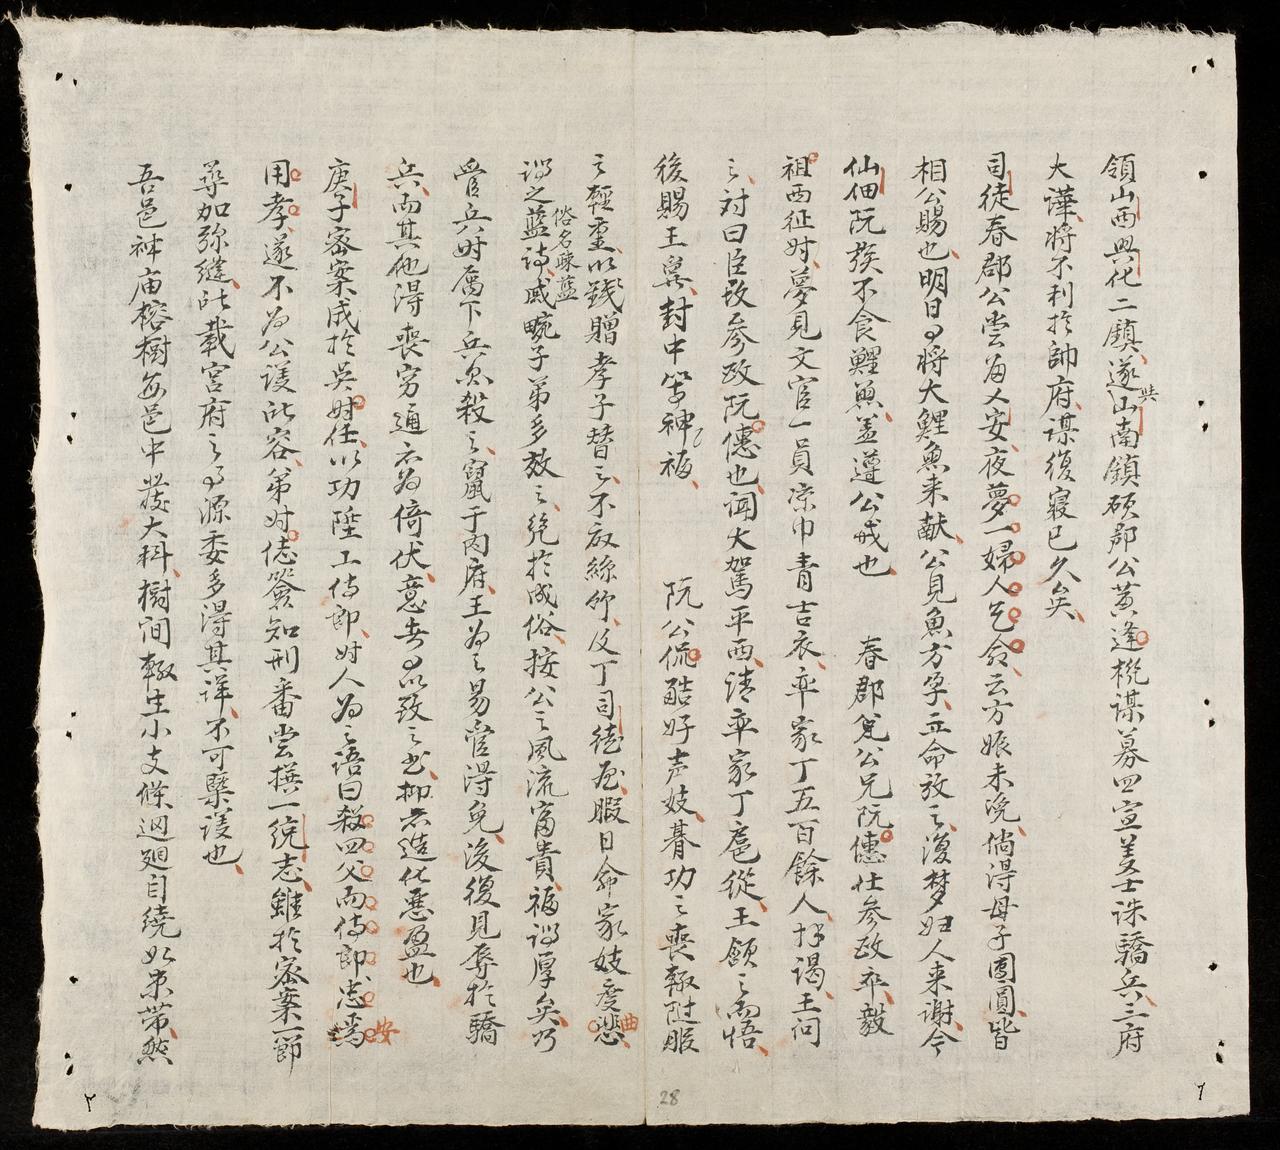 領山西興化二鎮遂共山南鎮碩郡公黃逢機謀募四宣義士誅驕兵三府
大譁將不利於帥府謀復寢已久矣
司徒春郡公尝為人安夜夢一婦人乞命云方娠未浼倘得母子團圓皆
相公賜也明日有將大鯉魚来献公見魚方孕立命放之復梦妇人来謝今
仙佃阮族不食鯉魚盖遵公戒也 春郡公兄阮僡仕參政卒毅
祖西征时夢見文官一員凉巾青吉衣率家丁五百餘人拜謁王问
之対曰臣故參政阮僡也闻大駕平西請率家丁扈從王頷之而悟
後賜王爵封中等神福 阮公侃酷好声妓朞功之喪輒陡服
之輕重以錢贈孝子替之不廢絲竹及丁司徒夜暇日命家妓度悲曲
謂之蓝诗俗名疎蓝戚畹子弟多效之絶於成俗按公之風流富貴福谓厚矣乃
管兵时属下兵欲殺之竄于内府王为之易管得免後復見辱於驕
兵而其他得喪穷通亦为倚伏意者有以致之者抑亦造化悪盈也
庚子密案成於吴时任以功陞工侍郎时人为之語曰殺四父而侍郎忠焉安
用孝遂不为公護所容弟时俧簽知刑番尝撰一統志雖於密案一節
尋加弥縫所載宮府之事源委多得其详不可槩议也
吾邑神庙榕樹每邑中發大科樹间輒生小支條迴廻自繞如束带然
28